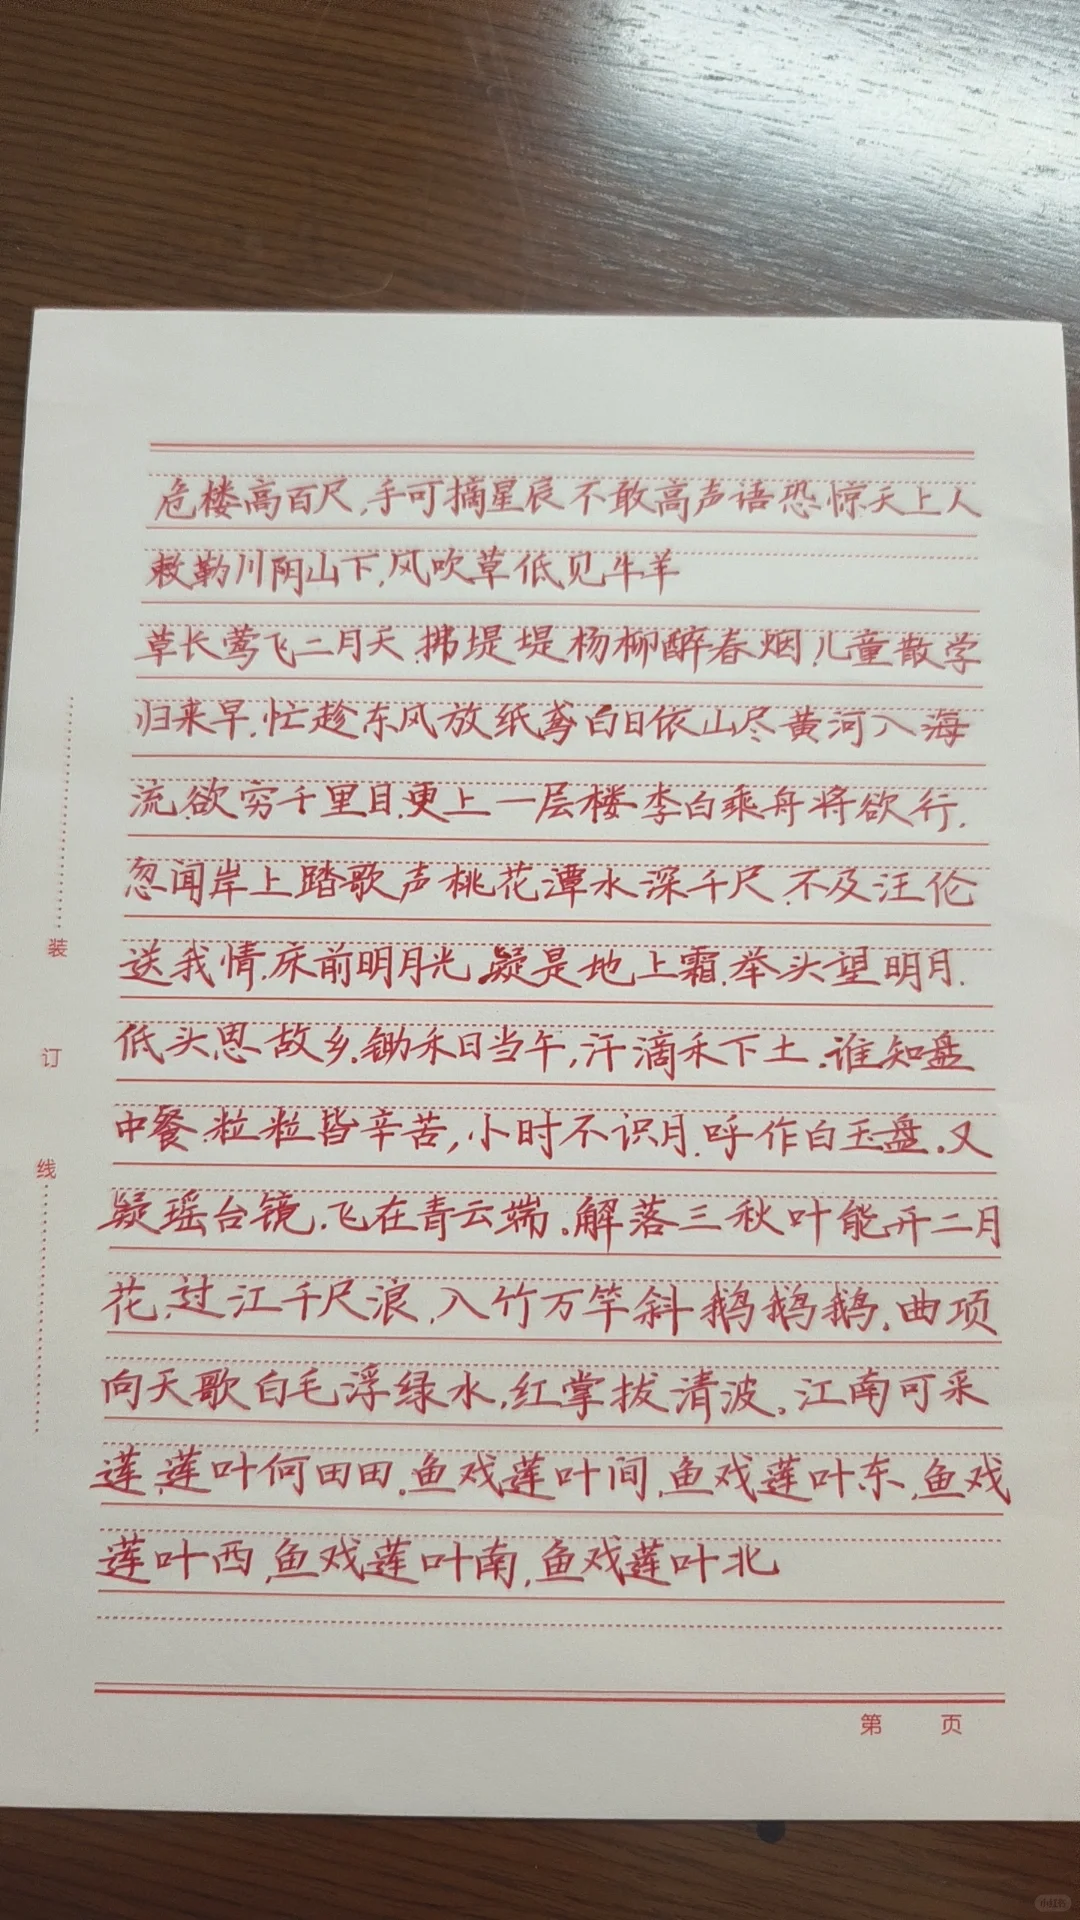 危楼高百尺,手可摘星辰不敢高声语恐惊天上人
敕勒川阴山下,风吹草低见牛羊
草长莺飞二月天.拂堤堤杨柳醉春烟.儿童散学
归来早.忙趁东风放纸鸢白日依山尽黄河入海
流.欲穷千里目.更上一层楼.李白乘舟将欲行.
忽闻岸上踏歌声桃花潭水深千尺.不及汪伦
送我情.床前明月光.疑是地上霜.举头望明月.
低头思故乡.锄禾日当午,汗滴禾下土.谁知盘
中餐.粒粒皆辛苦,小时不识月.呼作白玉盘.又
疑瑶台镜.飞在青云端.解落三秋叶能开二月
花.过江千尺浪,入竹万竿斜.鹅鹅鹅.曲项
向天歌白毛浮绿水,红掌拔清波。江南可采
莲.莲叶何田田.鱼戏莲叶间,鱼戏莲叶东,鱼戏
莲叶西,鱼戏莲叶南,鱼戏莲叶北
装
订
线
第 页